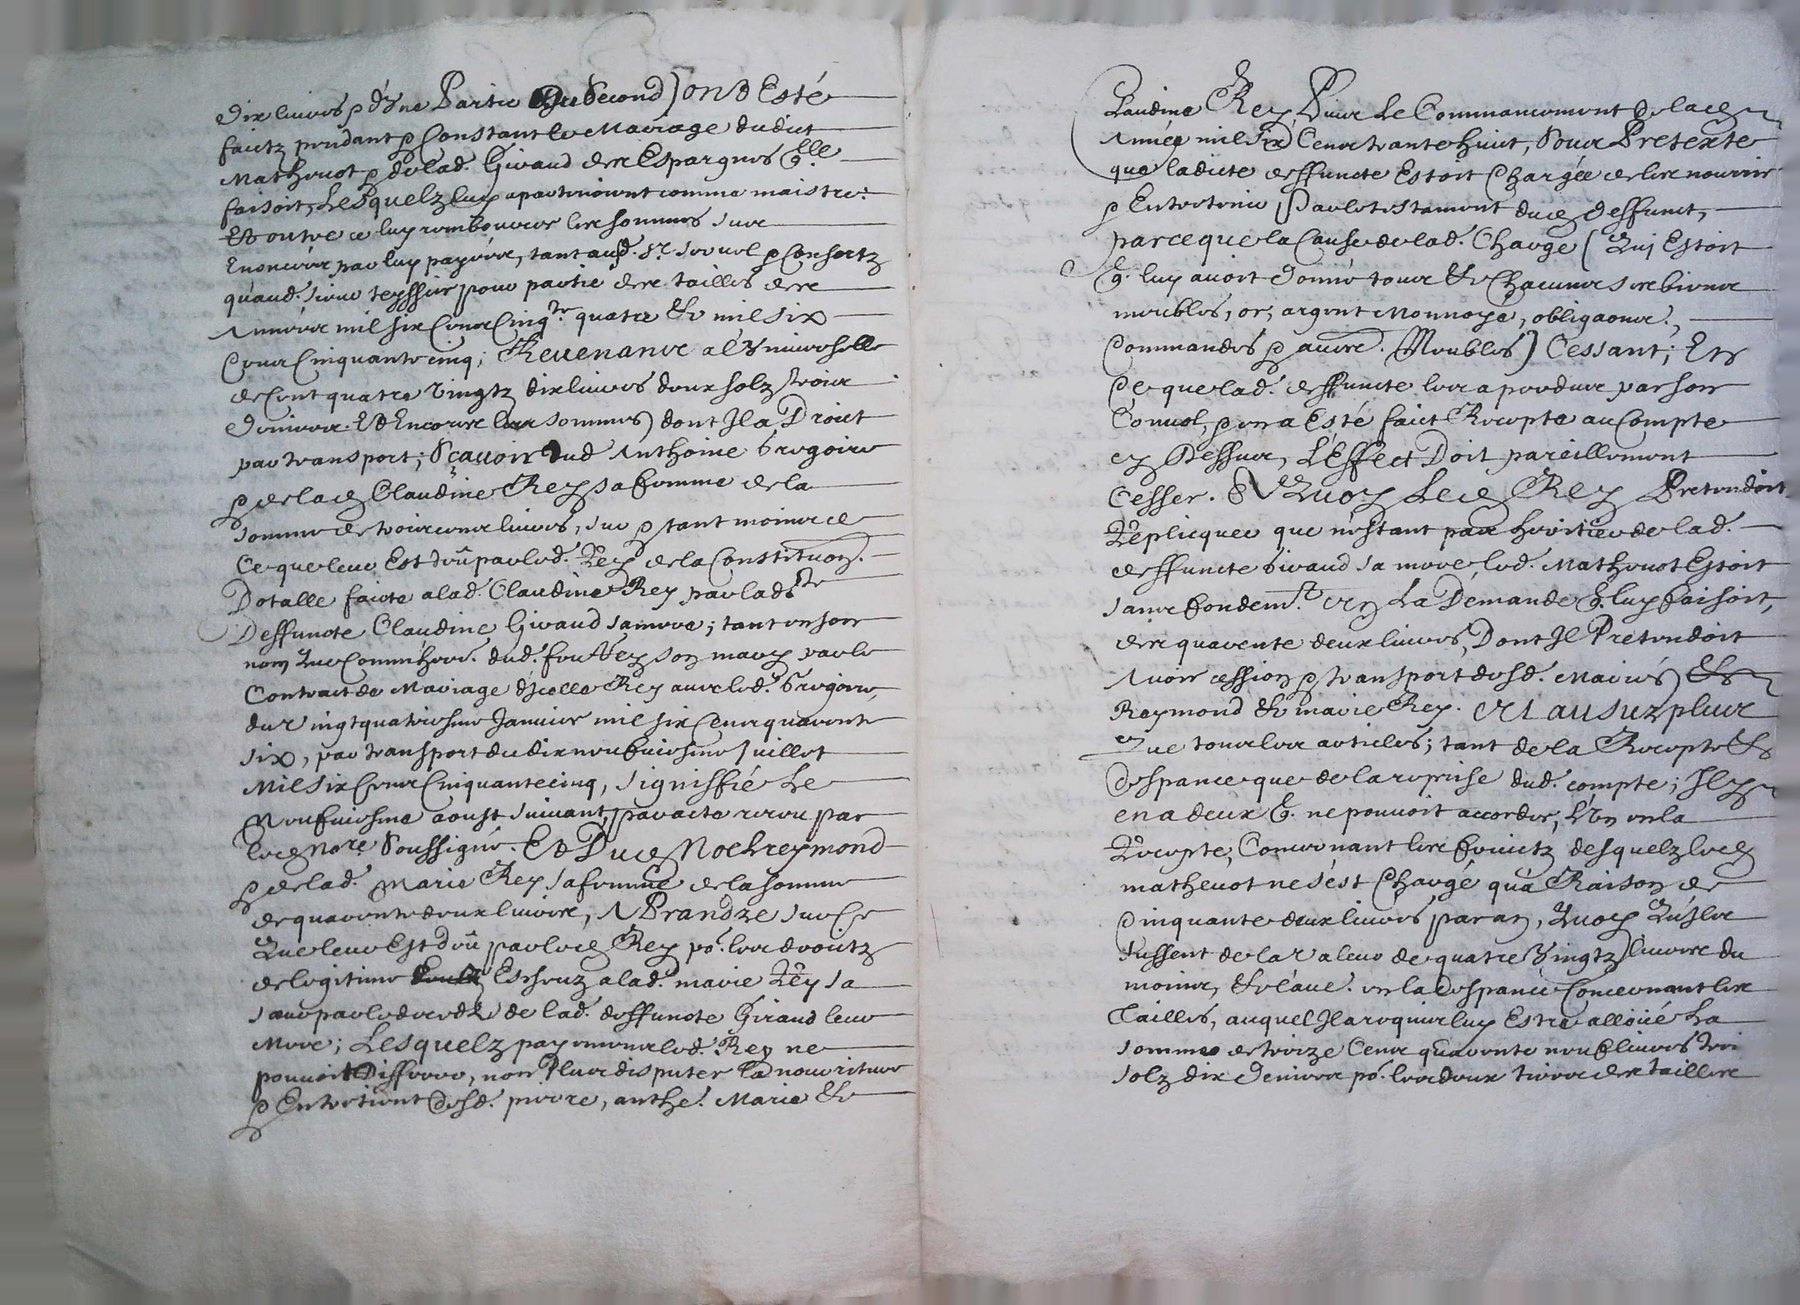 dix livres & d'une Partie Du Second) ont Esté
faictz pendant & Constant le Mariage dudict
Mathevot & de lad. Giraud des Espargnes qlle
faisoit, Lesquelz luy apartenoient comme maistre.
Et outre ce luy rembourcer les sommes sus
Enoncées par luy payées, tant aud. sr. & Consortz
qu'aud. sieur teyssier pour partie des tailles des
Années mil six Cens Cinqte quatre & mil six
Cens Cinquante cinq; Revenans a l'Universelle
de Cent quatre vingtz dix livres deux solz trois
deniers. Et Encores les sommes) dont Il a Droict
par transport; Sçavoir dud Anthoine Gregoire
& de lad Claudine Rey sa femme de la
somme de trois cens livres, sur & tant moins de
Ce que leur Est dû par led. Rey de la Constituon.
Dotalle faicte a lad. Claudine Rey par lade
Deffuncte Claudine Giraud sa mere; tant en son
nom Que Comm' her. dud. feu Rey son mary par le
Contract de Mariage d'jcelle Rey avec led. Gregoire,
du vingt quatriesme Janvier mil six Cens quarente
six, par transport du dix neufviesme Juillet
Mil six Cens Cinquante cinq, signiffié Le
Neufviesme aoust suivant, par acte receu par
led Nore. Soussigné. Et Dud Noel reymond
& de lad. Marie Rey sa femme de la somme
de quarente deux livres, A Prandre sur Ce
Que leur Est dû par led Rey po. les droictz
de legitime Escheuz a lad. marie Rey sa
sœur par le deceds de lad. deffuncte Giraud leur
Mere; Lesquelz payemens led. Rey ne
pouvoit Differer, non Plus disputer la nourriture
& Entretient desd. pierre, anthe. Marie &
Claudine Rey Pour Le Commancement de lad
Année mil six Cens trante huict, Sour Pretexte
que ladicte deffuncte Estoit Chargée de les nourrir
& Entretenir Par le testament dud deffunct,
parce que la Cause de lad. Charge (Quj Estoit
q. luy avoit donné tous & Chacuns ses biens
meubles, or, argent Monnoye, obligaons.,
Commandes & autres. Meubles) Cessant; Et
Ce que lad. deffuncte les a perdus par son
Convol, & en a Esté faict Recepte au Compte
cy Dessus, L'Effect Doit pareillement
Cesser. A Quoy Led Rey Pretendoit
Repliquer que n'estant pas heritier de lad.
deffuncte Giraud sa mere led. Mathevot Estoit
sans fondemt. En La Demande q. luy faisoit,
des quarente deux livres, Dont Il Pretendoit
Avoir cession & transport desd. Mariés)
Reymond & marie Rey. Et au surplus
Que tous les articles; tant de la Recepte &
despance que de la reprise dud. compte; Il y
en a deux q. ne pouvoit accorder, l'un en la
Recepte, Concernant les fruictz desquelz led
mathevot ne s'est Chargé qu'a Raison de
Cinquante deux livres par an, Quoy Qu'ilz
fussent de la valeur de quatre Vingtz livres du
moins, & l'au. en la despance Concernant les
Tailles, auquel Il a requis luy Estre alloüé La
somme de treize Cens quarente neuf livres trei
solz dix deniers po. les deux tiers des tailles